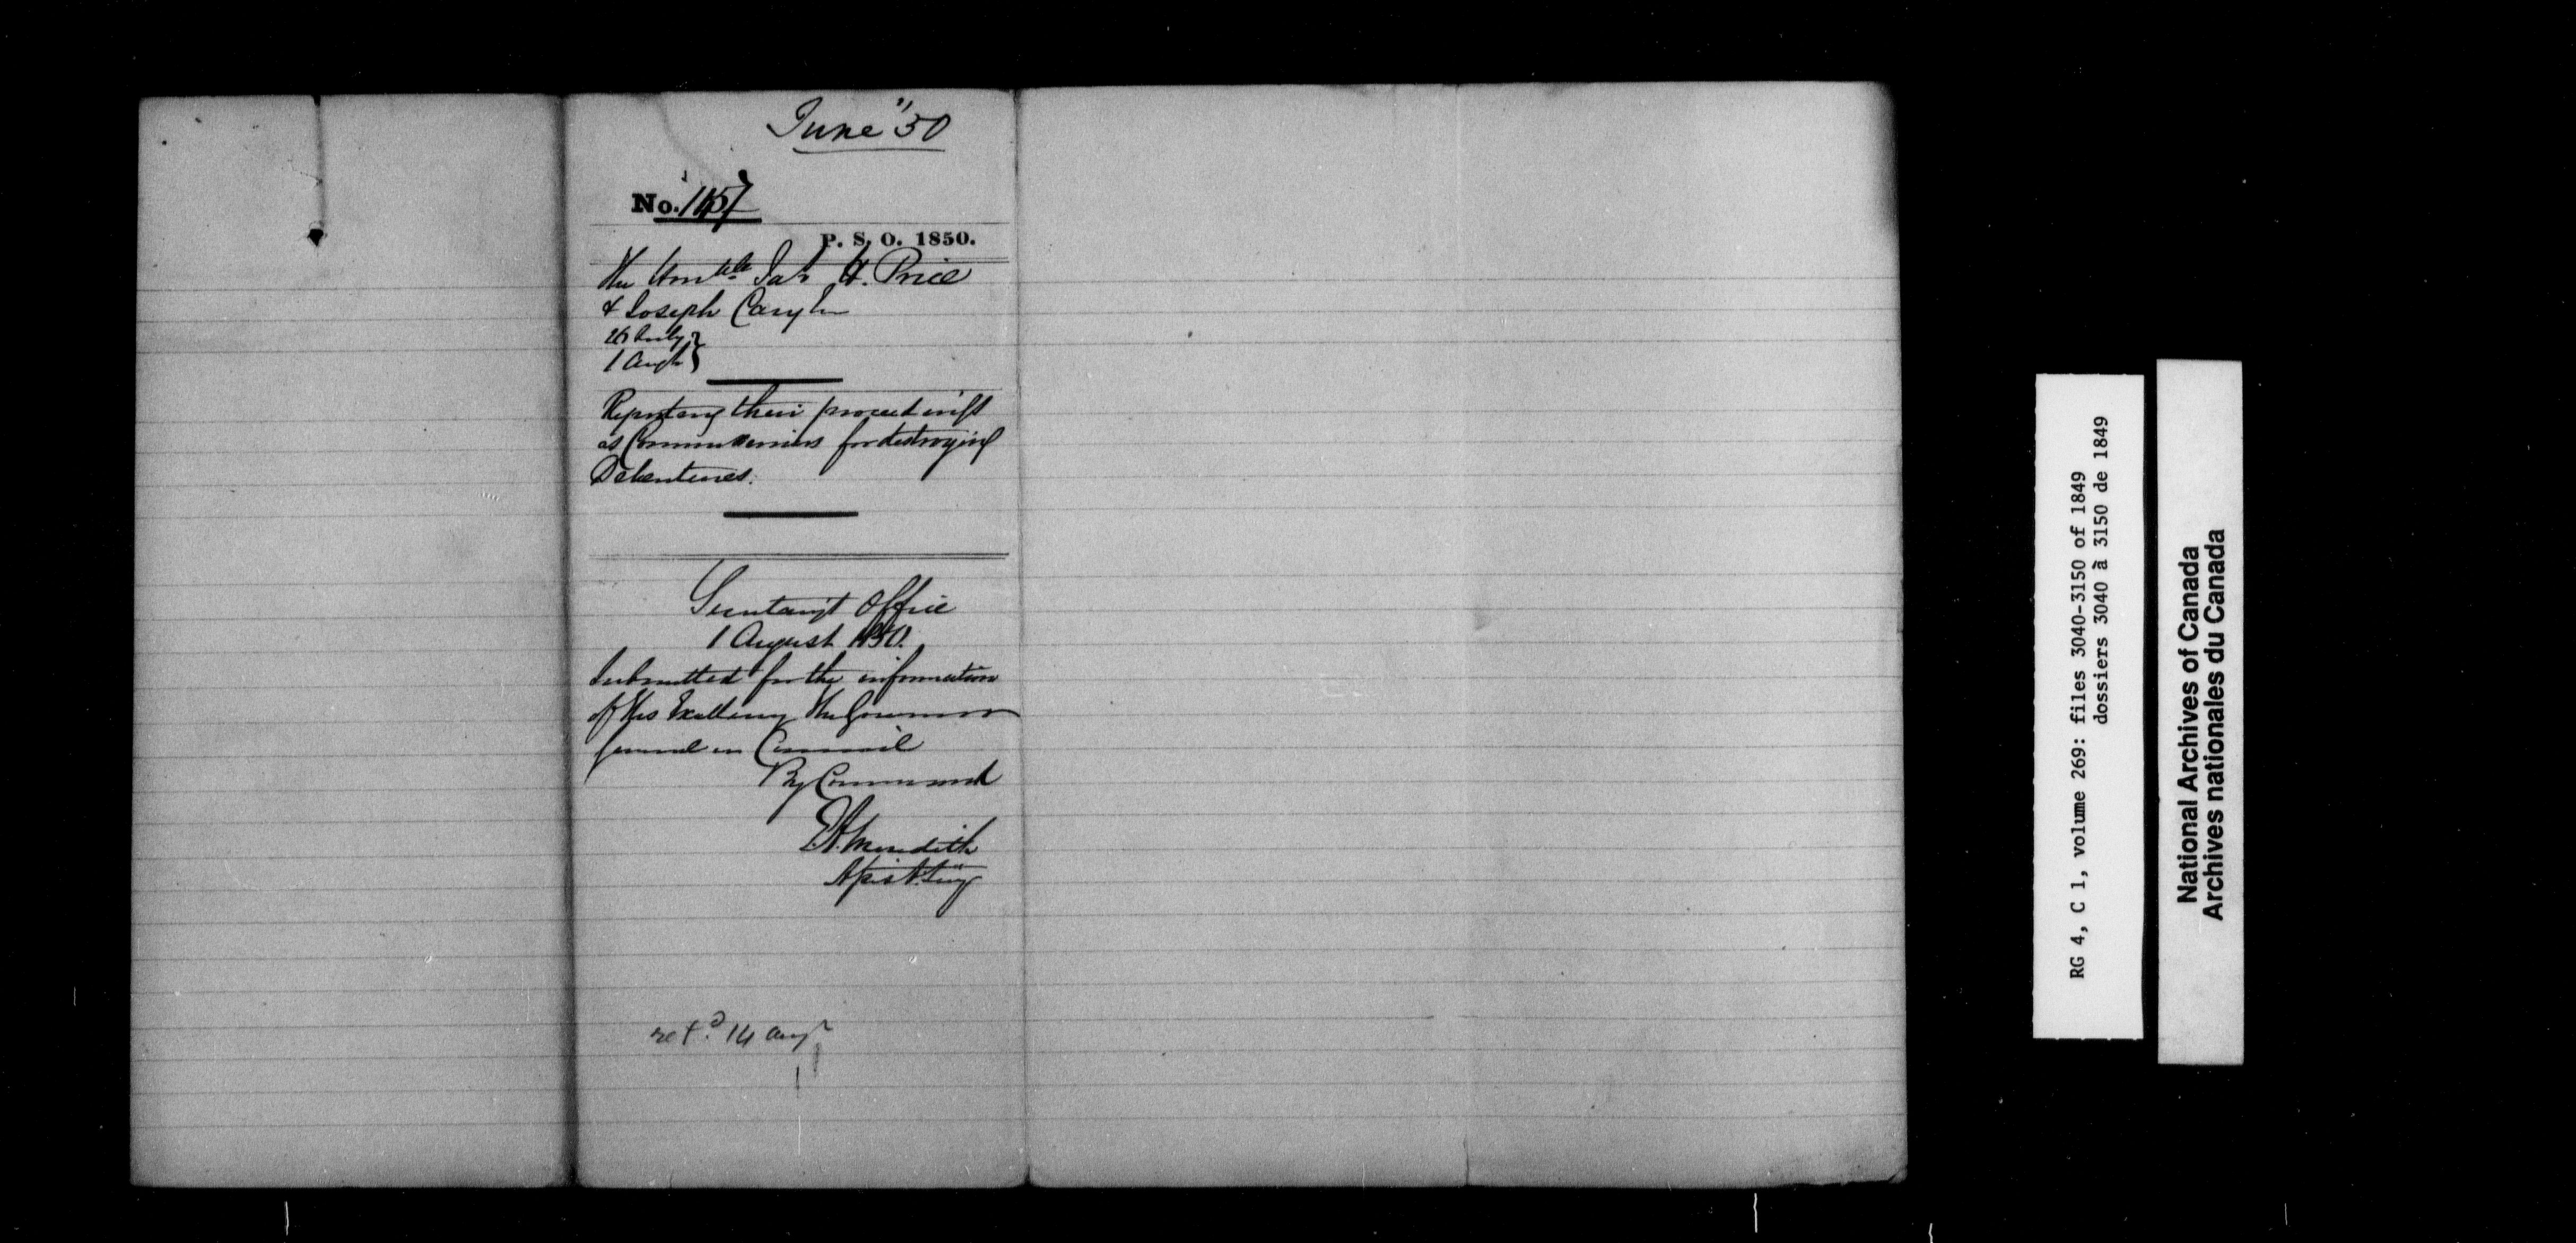 June "50
No. 1157
P. S. O. 1850.
The Honble Jas H. Price
& Joseph Cary Esq
26 July }
1 Augt }
Reporting their proceedings
as Commissioners for destroying
Debentures.
Secretary's Office
1 August 1850.
Submitted for the information
of His Excellency the Governor
General in Council
By Command
E A Meredith
Asst Secy
retd. 14 Augt
RG 4, C 1, volume 269: files 3040-3150 of 1849
dossiers 3040 à 3150 de 1849
National Archives of Canada
Archives nationales du Canada